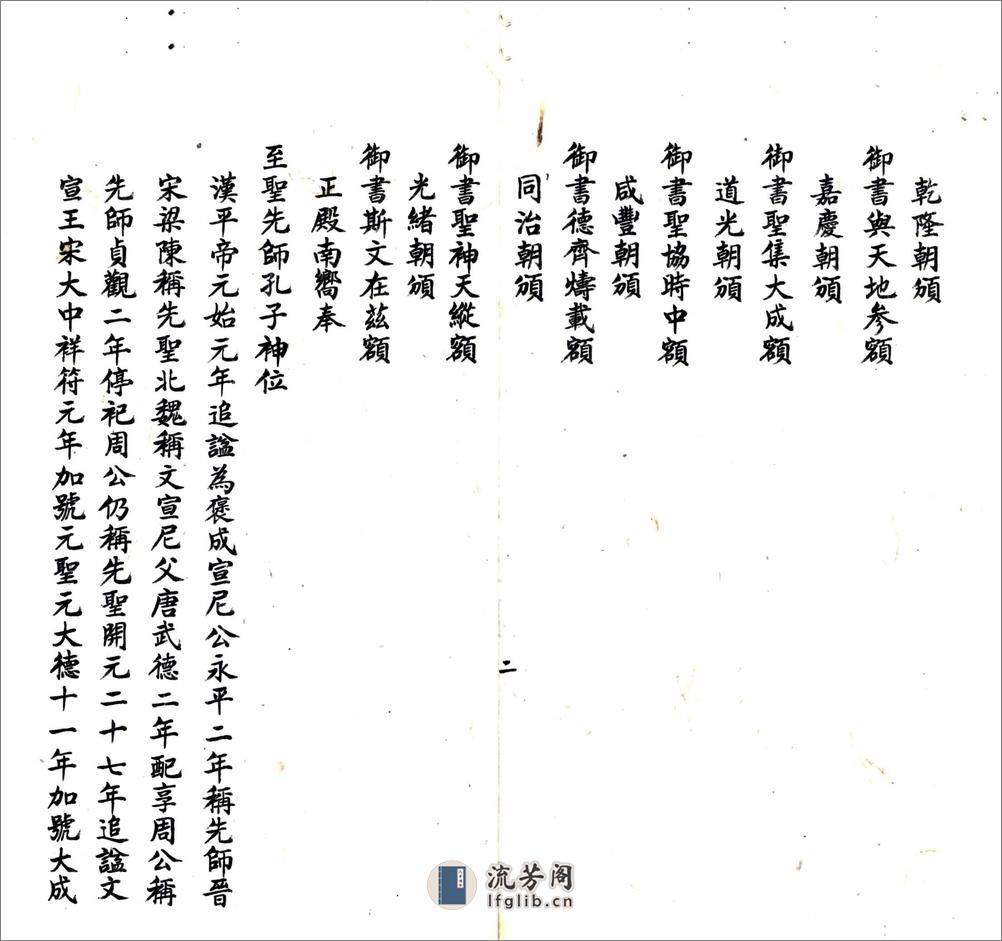 乾隆朝頒
御書與天地參額
嘉慶朝頒
御書聖集大成額
道光朝頒
御書聖協時中額
咸豐朝頒
御書德齊幬載額
同治朝頒
御書聖神天縱額
光緒朝頒
御書斯文在茲額
正殿南嚮奉
至聖先師孔子神位
漢平帝元始元年追謚為褒成宣尼公永平二年稱先師晉
宋梁陳稱先聖北魏稱文宣尼父唐武德二年配享周公稱
先師貞觀二年停祀周公仍稱先聖開元二十七年追謚文
宣王宋大中祥符元年加號元聖元大德十一年加號大成
二
流芳阁
lfglib.cn